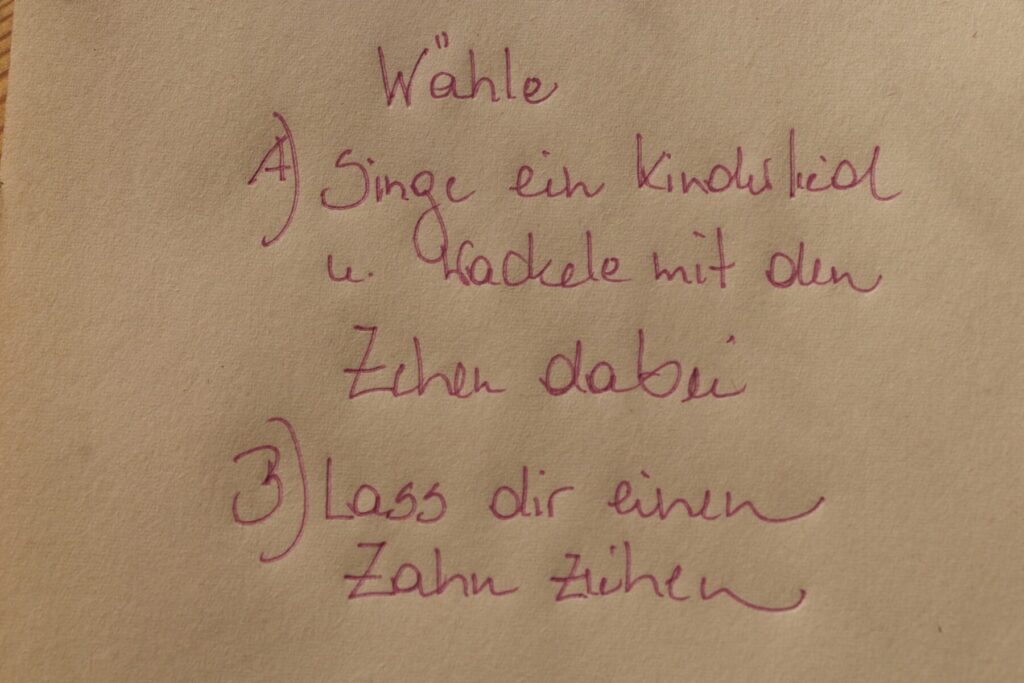 Wähle
A) Singe ein Kinderlied
u. Wackele mit den
Zehen dabei
B) Lass dir einen
Zahn ziehen